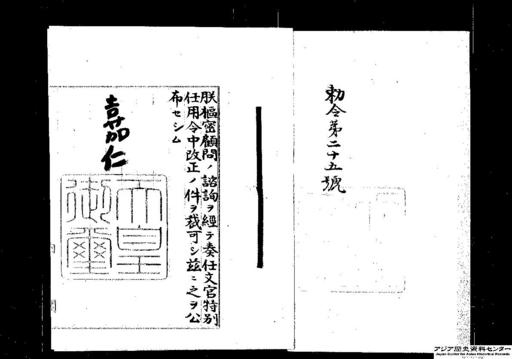 勅令第二十五號
朕樞密顧問ノ諮詢ヲ經テ奏任文官特別
任用令中改正ノ件ヲ裁可シ茲ニ之ヲ公
布セシム
嘉仁
天皇
御璽
アジア歴史資料センター
Japan Center for Asian Historical Records